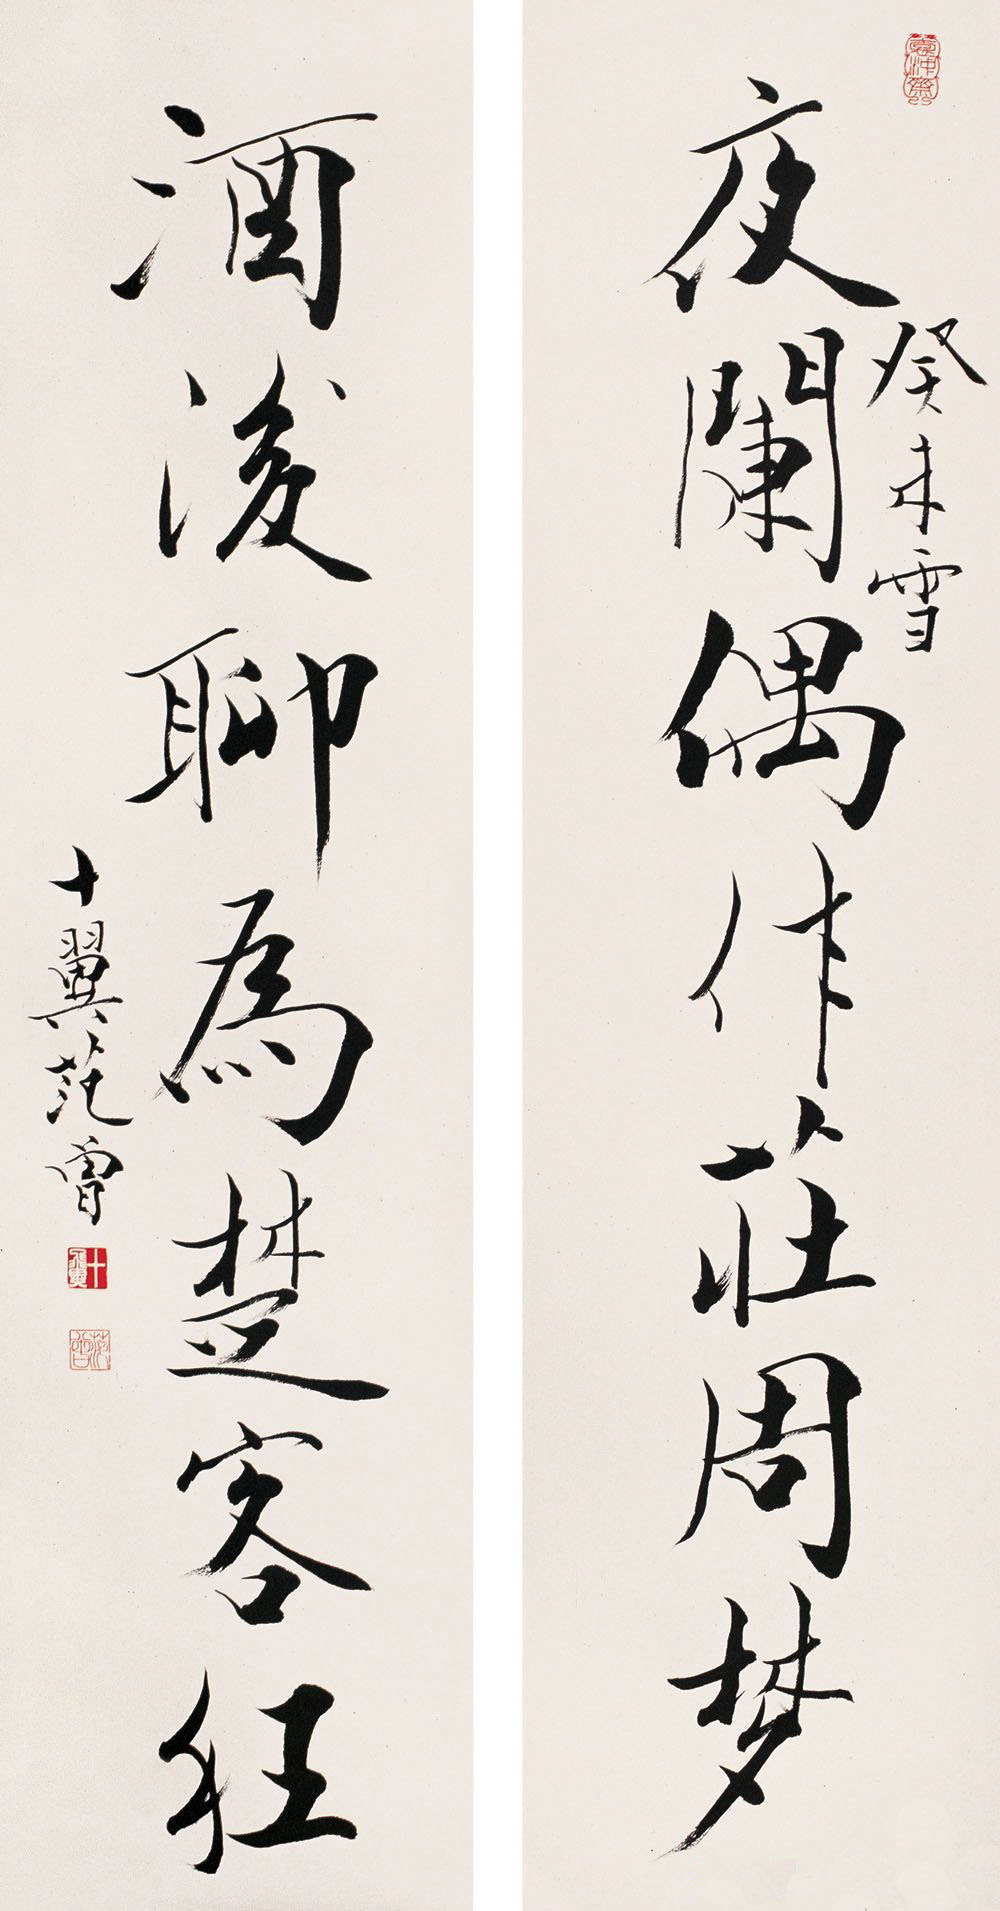 癸未雪
夜闌偶作莊周梦
酒後聊為楚客狂
十翼范曾
十翼
范曾